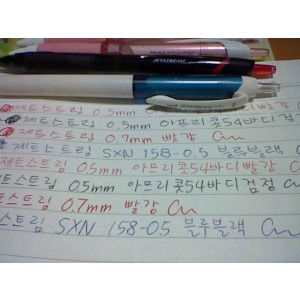 JETSTREAM
제트스트림 0.5mm 아프리콧54바디빨강
제트스트림 0.5mm 아프리콧54바디검정
제트스트림 0.7mm 빨강
제트스트림 SXN 158-0.5 블루블랙
제트스트림 0.5mm 아프리콧54바디빨강
제트스트림 0.5mm 아프리콧54바디검정
트스트림 0.7mm 빨강
스트림 SXN 158-05 블루블랙